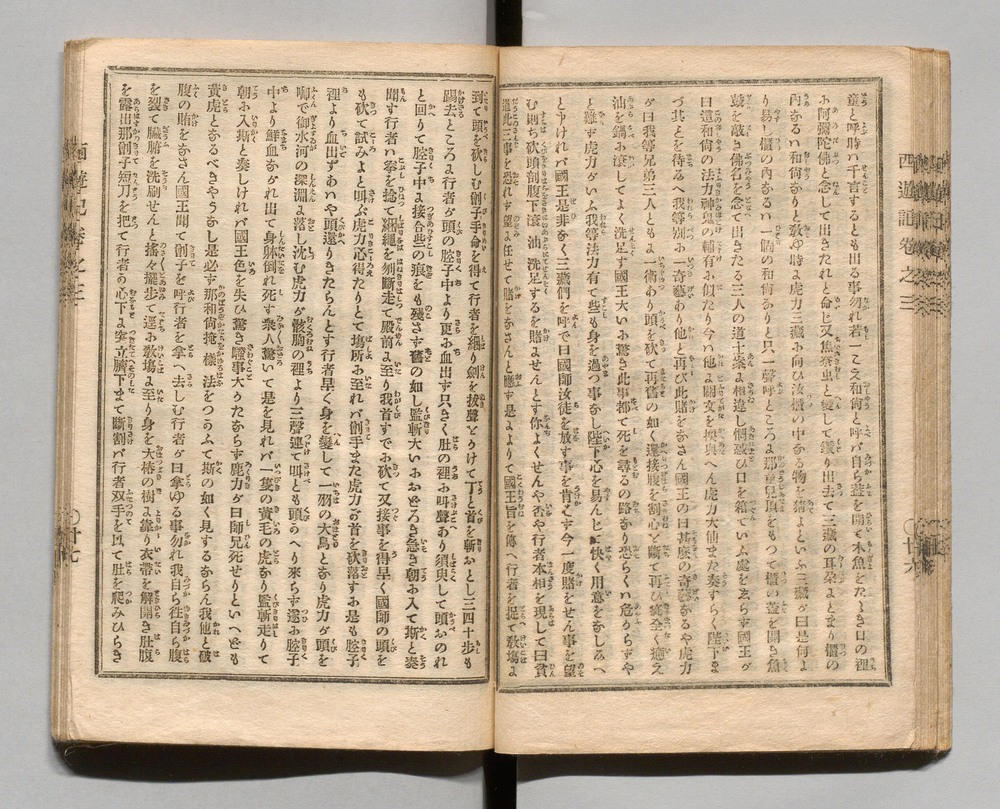 西遊記巻之三
童と呼時ハ千言するとも出る事勿れ若一こえ和尚と呼バ自ら蓋を開て木魚をたゝき口の裡
阿彌陀佛と念して出きたれと命じ又焦蟟虫と変して鑽り出去て三蔵の耳朶よとまり櫃の
内なるハ和尚なりと教ゆ時よ虎力三蔵に向ひ汝櫃の中なる物を猜よといふ三蔵が曰是何よ
り易し櫃の内なるハ一箇の和尚なりと只一聲呼ところよ那童兒頂をもつて櫃の蓋を開き魚
鼓を敲き佛名を念て出きたる三人の道士案よ相違し惘惑ひ口を箝ていふ處をゑらず國王が
曰這和尚の法力神鬼の輔有に似たり今ハ他よ關文を換與へん虎力大仙また奏すらく陛下ま
づ其とを待るへ我等別に一奇藝あり他と再び此賭をなさん國王の曰甚麽の奇藝なるや虎力
が曰我等兄弟三人ともよ一術あり頭を砍て再舊の如く還接腹を割心と斷て再ひ完全く癒え
油を鍋に滾してよく洗足す國王大いに驚き此事都て死を尋るの路なり恐らくハ危からずや
と難ず虎力がいふ我等法力有て些も身を過つ事なし陛下心を易んじ快く用意をなしるへ
と申けれバ國王是非なく三蔵們を呼で曰國師汝徒を放す事を肯ぜす今一度賭をせん事を望
む則ち砍頭剖腹下滾油洗足するを賭ませんとす你よくせんや否や行者本相を現して曰貧
道此三事を恐れず望よ任せて賭をなさんと應す是よよりて國王旨を傳へ行者を捉て教塲よ
○廿六
到て頭を砍しむ劊子手命を得て行者を綑り劍を拔聲とりけて丁と首を斬おとし三四十歩も
踢去ところよ行者が頭の腔子中より更に血出ず只きく肚の裡に叫聲あり須臾して頭おのれ
と回りて腔子中よ接合些の痕をも殘さず舊の如し監斬大いにおどろき急き朝に入て斯と奏
聞す行者ハ拳を捻て綑繩を刎斷走て殿前よ至り我首すでに砍て又接事を得早く國師の頭を
も砍て試みよと啨ふ虎力心得たりとて塲所に至れバ劊手また虎力が首を砍落すに是も腔子
裡より血出ずあハや頭還りきたらんとす行者早く身を變して一羽の大鳥となり虎力が頭を
啣で御水河の深淵よ落し沈む虎力が骸胸の裡より三聲連て叫とも頭かへり來らず遂に腔子
中より鮮血ながれ出て身躰倒れ死す衆人驚いて是を見れバ一隻の黃毛の虎なり監斬走りて
朝に入斯と奏しけれバ國王色を失ひ驚き騷事大かたならず鹿力が曰師兄死せりといへども
黃虎となるべきやうなし是必ず那和尚掩樣法をつかふて斯の如く見するならん我他と破
腹の賭をなさん國王聞て劊子を呼行者を拿へ去しむ行者が曰拿ゆる事勿れ我自ら往自ら腹
を裂て臓腑を洗刷せんと搖々擺歩て逕に敎塲よ至り身を大樁の樹よ靠り衣帶を解開き肚腹
を露出那劊子短刀を把て行者の心下よ突立臍下まで斷割バ行者双手を以て肚を爬みひらき
西遊記巻之三
○廿七